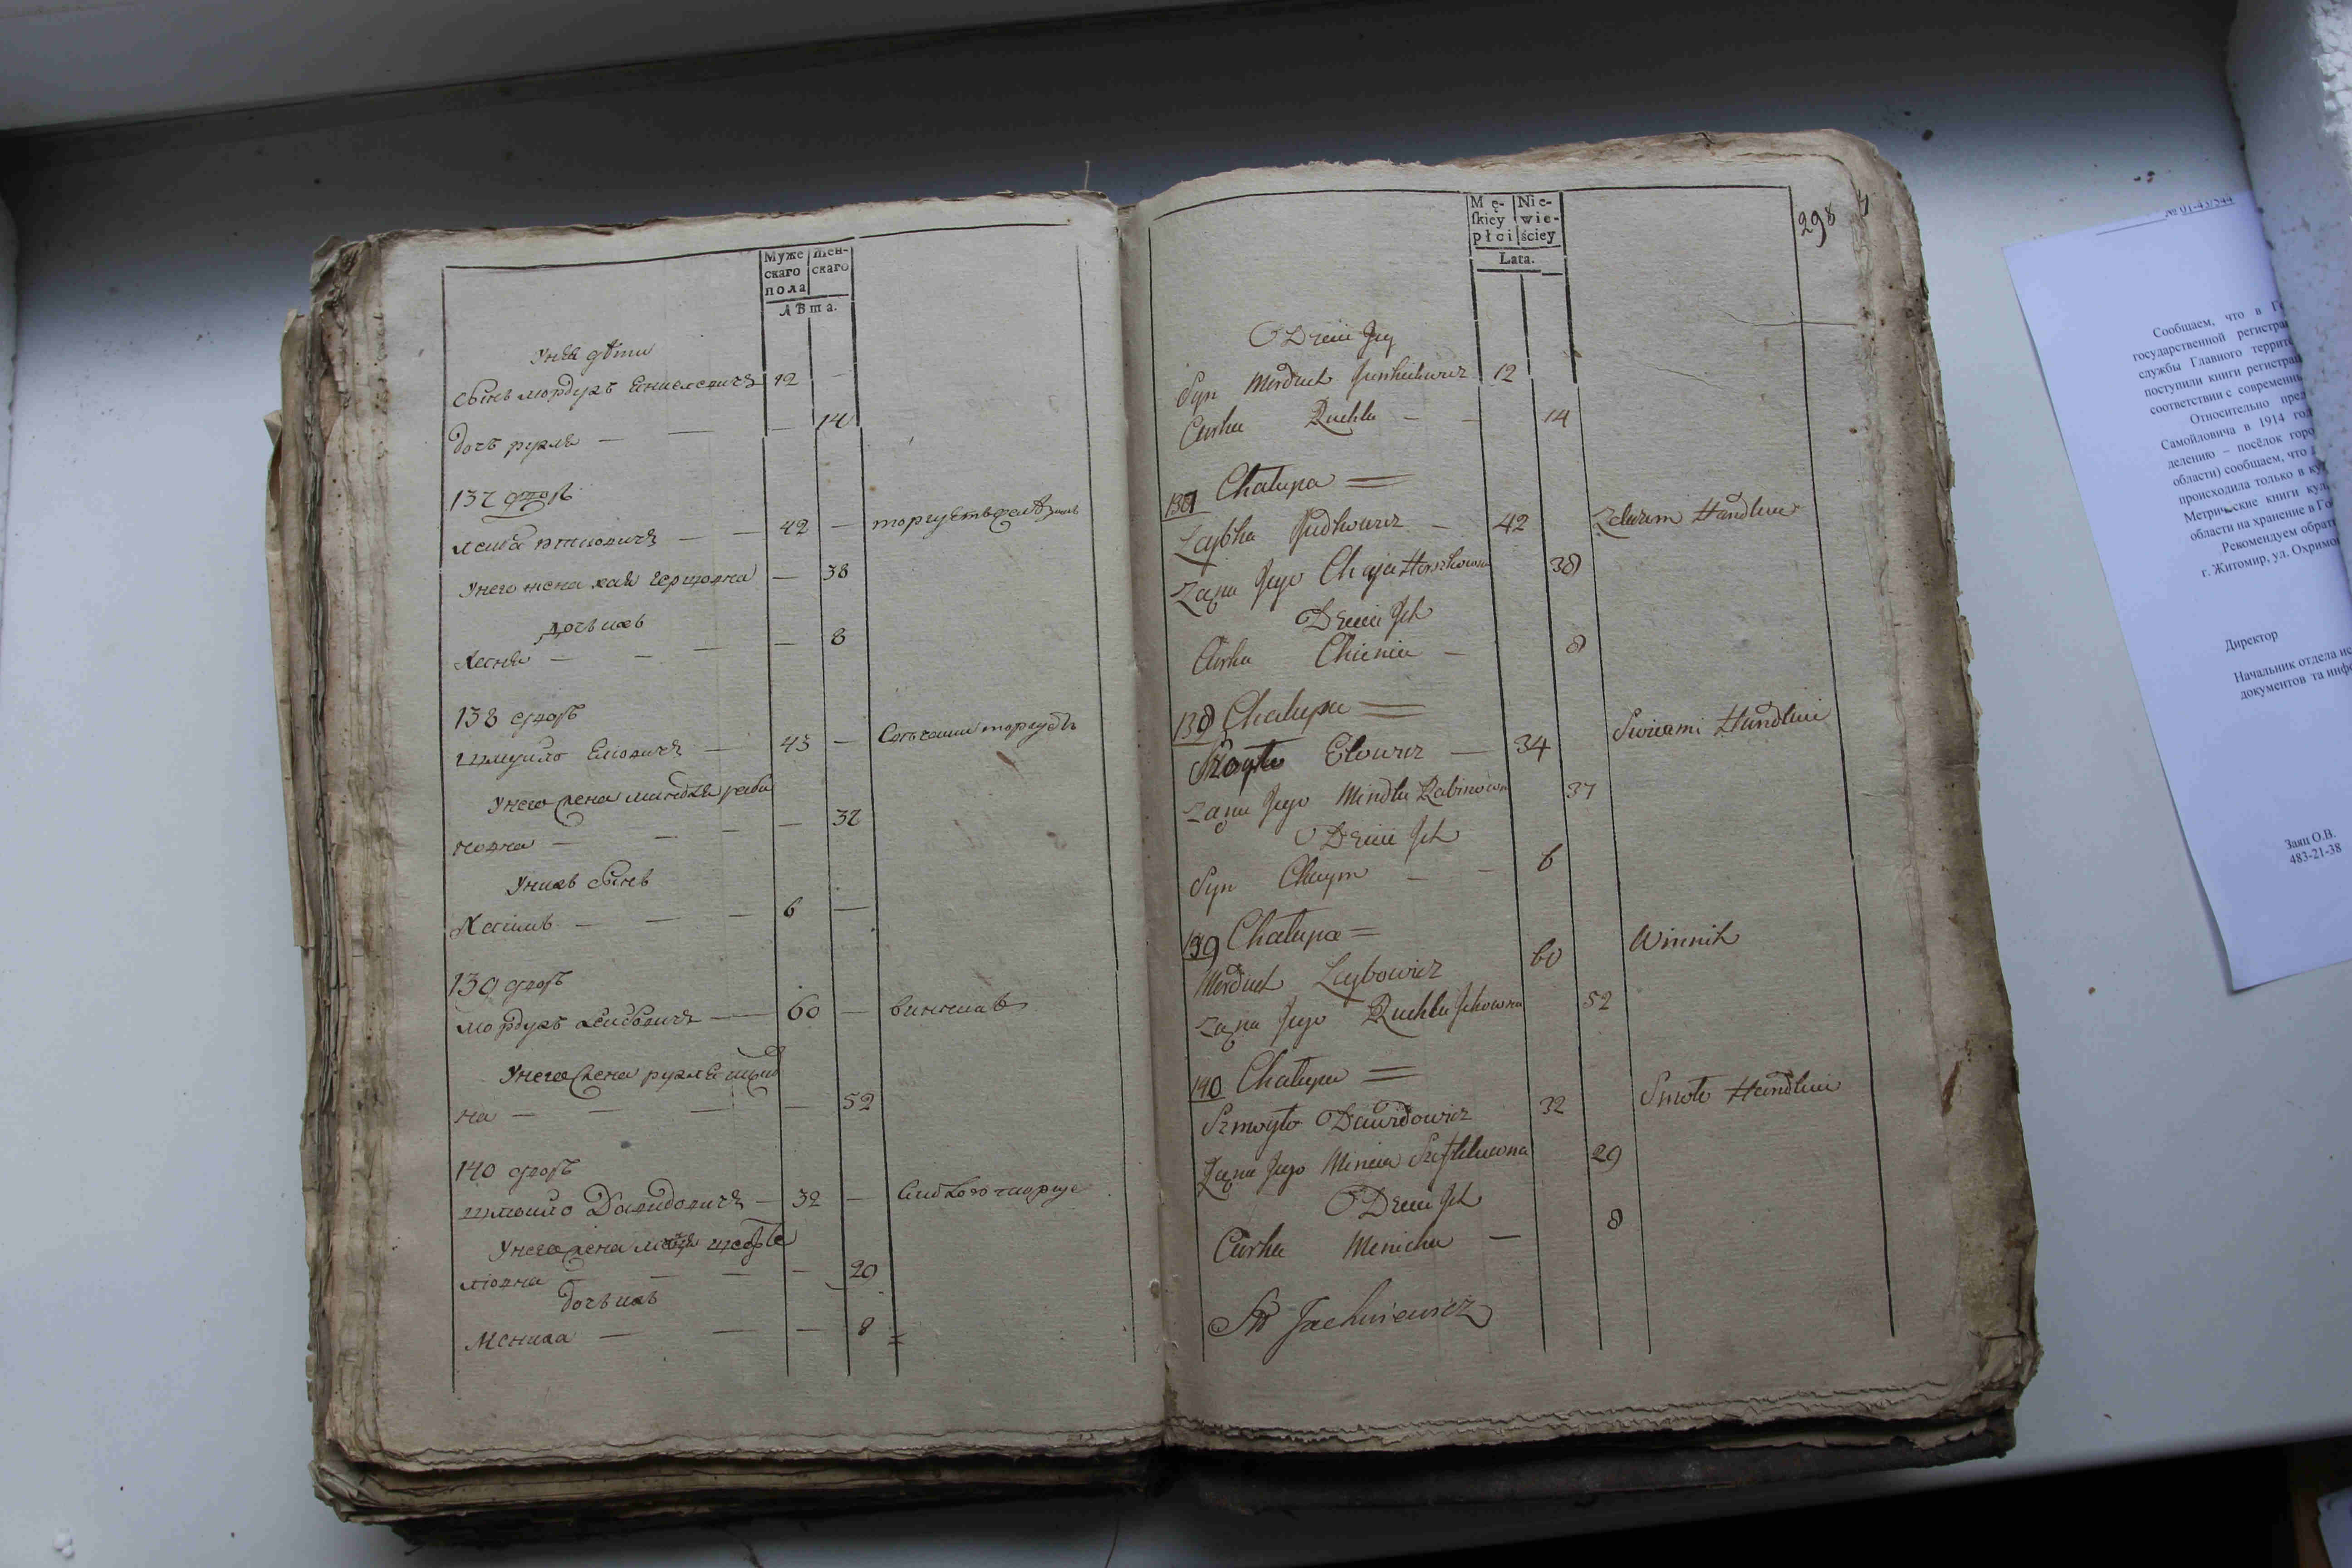 Муже
скаго
пола
жен-
скаго
лѣта.
У нея дѣти
Сынъ мордухъ 12 —
дочь рухля — — — 14
137 дворъ
лейба 42 —
У него жена хая гершовна — 38
дочь ихъ
Хасня — — — — 8
138 дворъ
шмуйло Елiовичъ — 43 — Свѣчами торгуетъ
У него жена миндля раби
новна — — — — 37
У нихъ сынъ
Хаимъ — — — 6 —
139 дворъ
мордухъ Лейбовичъ — 60 — винникъ
У него жена рухля
на — — — — 52
140 дворъ
шмойло Давидовичъ — 32 —
У него жена
лiовна — — — 29
дочь ихъ
Мениха — — — 8
298
Mę-
skiey
płci
Nie-
wie-
ściey
Lata.
Dzieci Jey
Syn Morduch 12
Curka Ruchla — — 14
137 Chałupa =
Leybka Judkowicz — 42 Żelazem Handluie
Żąna Jego Chaja Herszkowna 38
Dzieci Ich
Curka Chienia — 8
138 Chałupa =
Elowicz — 34 Swicami Handluie
Żąna Jego Mindla Rabinowna 37
Dzieci Ich
Syn Chaym — — 6
139 Chałupa =
Morduch Leybowicz 60 Winnik
Żąna Jego Ruchla Ickowna 52
140 Chałupa =
Szmoyło Dawidowicz 32 Smoło Handluie
Żąna Jego Mincia 29
Dzieci Ich
Curka Menicha — 8
Jachniewicz
№ 01-43/344
Сообщаем, что в
государственной
службы Главного
поступили книги
соответствии с
Относительно
Самойловича в 1914
делению – посёлок
области) сообщаем, что
происходила только в
Метрические книги
области на хранение в
Рекомендуем
г. Житомир, ул.
Директор
Начальник отдела
документов та
Заяц О.В.
483-21-38